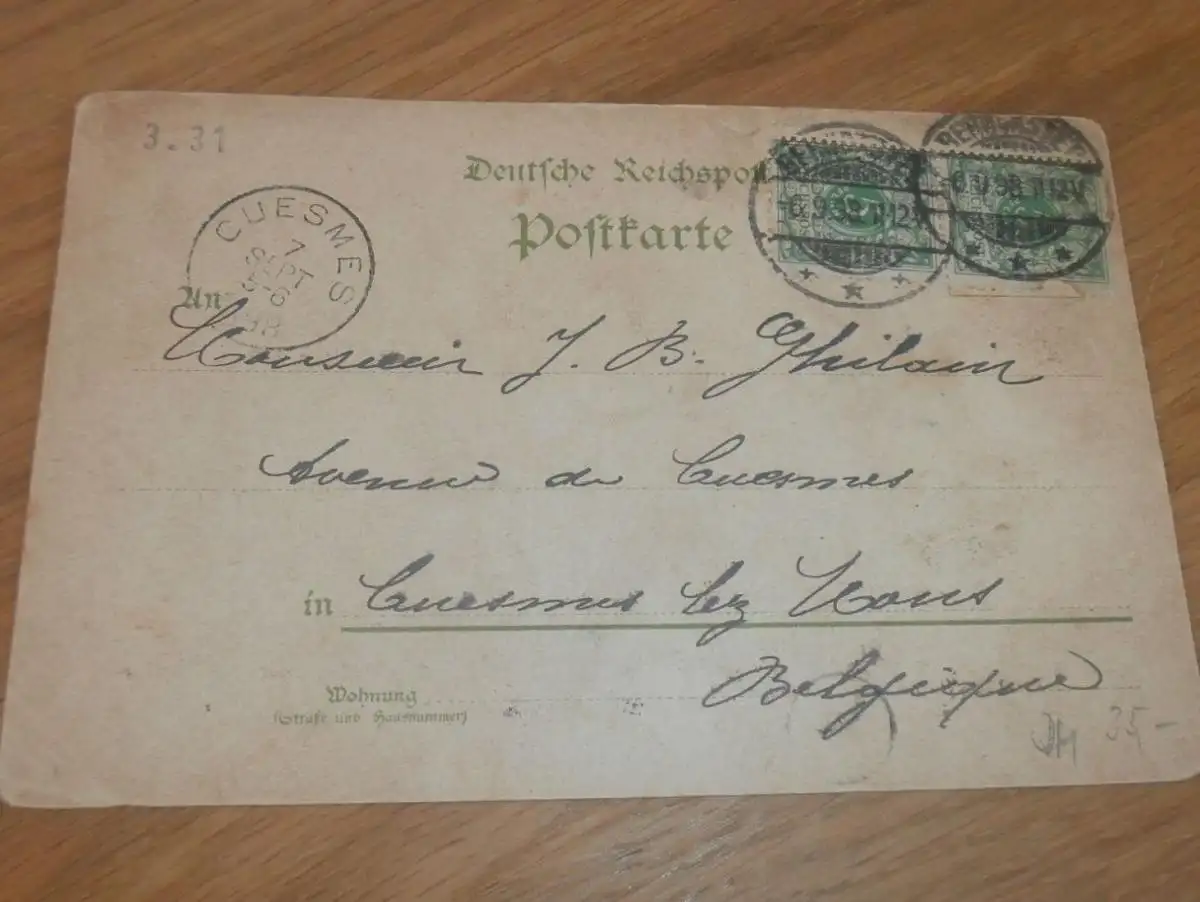 3.31
Deutsche Reichspost
Postkarte
CUESMES
7
SEPT
5-6
98
An
Monsieur J. B. Ghilain
Avenue de Cuesmes
in Cuesmes lez Mons
Belgique
Wohnung
(Straße und Hausnummer)
6.9.98 11-12V
6.9.98 11-12V
35,-